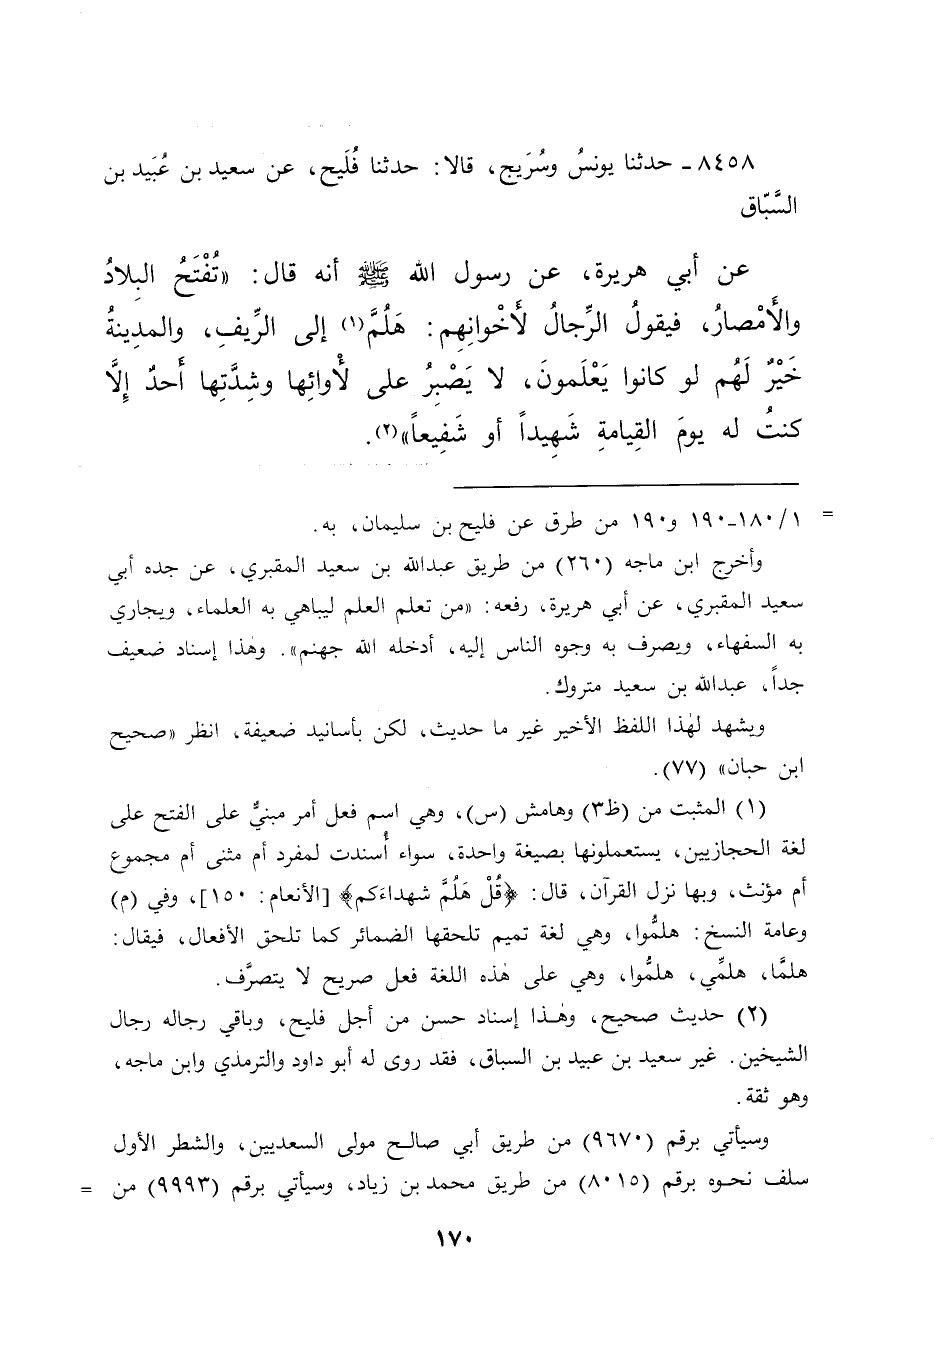 ٨٤٥٨ - حدثنا يونسُ وسُرَيج، قالا: حدثنا فُلَيح، عن سعيد بن عُبَيد بن
السَّبّاق
عن أبي هريرة، عن رسول الله ﷺ أنه قال: «تُفْتَحُ البِلادُ
والأَمْصارُ، فيقولُ الرِّجالُ لأخْوانِهِم: هَلُمَّ(١) إلى الرِّيفِ، والمدِينةُ
خَيْرٌ لَهُم لو كانوا يَعْلَمونَ، لا يَصْبِرُ على لأْوائِها وشِدَّتِها أَحدٌ إلَّا
كنتُ له يومَ القِيامةِ شَهِيداً أو شَفِيعاً»(٢).
= ١/ ١٨٠-١٩٠ و١٩٠ من طرق عن فليح بن سليمان، به.
وأخرج ابن ماجه (٢٦٠) من طريق عبدالله بن سعيد المقبري، عن جده أبي
سعيد المقبري، عن أبي هريرة، رفعه: «من تعلم العلم ليباهي به العلماء، ويجاري
به السفهاء، ويصرف به وجوه الناس إليه، أدخله الله جهنم». وهٰذا إسناد ضعيف
جداً، عبدالله بن سعيد متروك.
ويشهد لهٰذا اللفظ الأخير غير ما حديث، لكن بأسانيد ضعيفة، انظر «صحيح
ابن حبان» (٧٧).
(١) المثبت من (ظ٣) وهامش (س)، وهي اسم فعل أمر مبنيٌّ على الفتح على
لغة الحجازيين، يستعملونها بصيغة واحدة، سواء أُسندت لمفرد أم مثنى أم مجموع
أم مؤنث، وبها نزل القرآن، قال: ﴿قُلْ هَلُمَّ شهداءَكم﴾ [الأنعام: ١٥٠]، وفي (م)
وعامة النسخ: هلمُّوا، وهي لغة تميم تلحقها الضمائر كما تلحق الأفعال، فيقال:
هلمَّا، هلمِّي، هلمُّوا، وهي على هٰذه اللغة فعل صريح لا يتصرَّف.
(٢) حديث صحيح، وهٰذا إسناد حسن من أجل فليح، وباقي رجاله رجال
الشيخين. غير سعيد بن عبيد بن السباق، فقد روى له أبو داود والترمذي وابن ماجه،
وهو ثقة.
وسيأتي برقم (٩٦٧٠) من طريق أبي صالح مولى السعديين، والشطر الأول
سلف نحوه برقم (٨٠١٥) من طريق محمد بن زياد، وسيأتي برقم (٩٩٩٣) من =
١٧٠